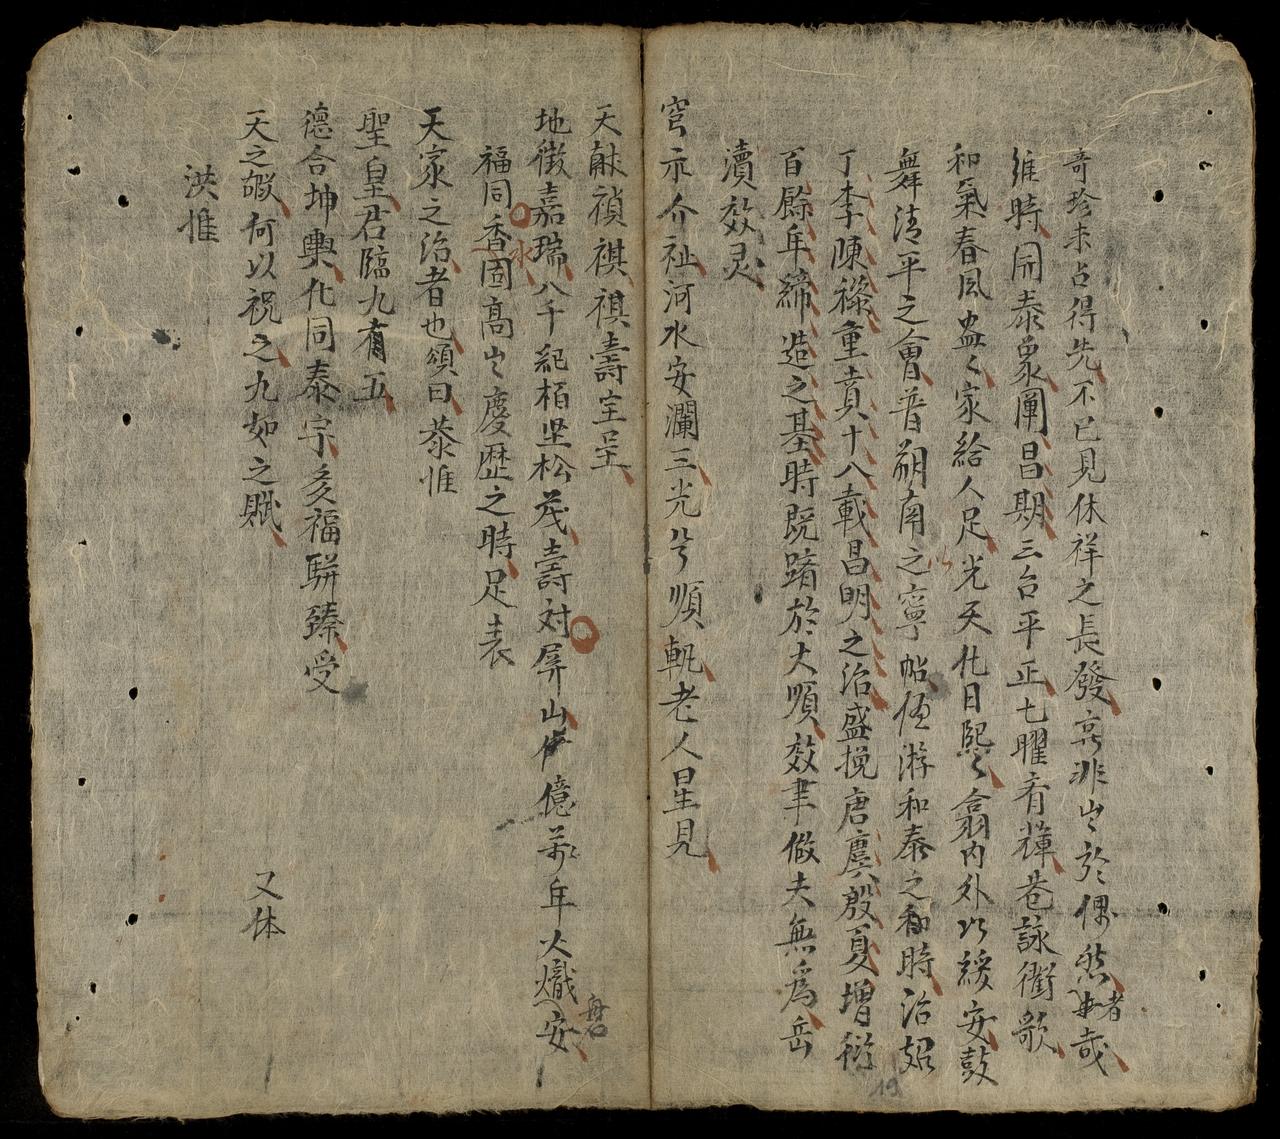 奇珍未占得先不已見休祥之長發哀非出於偶然者哉
維時開泰象闡昌期三台平正七曜宥輝巷詠衢歌
和氣春風盎〻家給人足光天化日熙〻翕内外以綏安鼓
舞清平之會普朔南之寧帖優游和泰之和時治
丁李陳祿重賁十八載昌明之治盛挽唐虞殷夏增衍
百餘年締造之基時既躋於大順效聿做夫無爲岳
瀆效灵
穹示介祉河水安瀾三光兮順軌老人星見
天献禎祺祺壽宝呈
地徵嘉瑞八千紀栢坚松茂壽対屏山億萬年火熾安
磐
福同香固高出慶歴之時足表
水
天家之治者也頌曰恭惟
聖皇君臨九有五
德合坤輿化同泰宇多福駢臻受
天之嘏何以祝之九如之賦
洪惟
又体
19